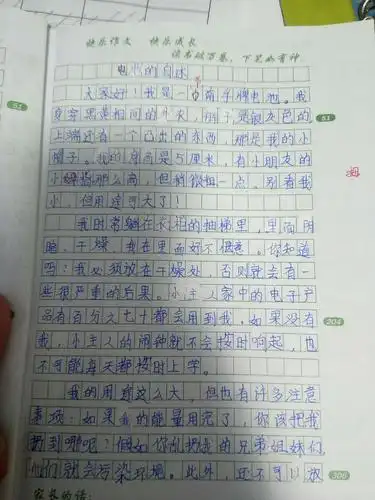 快乐作文 快乐成长
读书破万卷，下笔如有神
电池的自述
大家好！我是一只南孚牌电池。我
身穿黑黄相间的外衣，裤子是银灰色的，
上端还有一个凸出的东西，那是我的小
帽子。我的身高是5厘米，有小朋友的
小拇指那么高，但稍微粗一点。别看我
小，但用途可大了！
我时常躺在衣柜的抽梯里，里面阴
暗、干燥，我在里面好不惬意。你知道
吗？我必须放在干燥处，否则就会有一
些很严重的后果。小主人家中的电子产
品有百分之七十都会用到我，如果没有
我，小主人的闹钟就不会按时响起，也
不可能每天都按时上学。
我的用途这么大，但也有许多注意
事项：如果我的能量用完了，你该把我
扔到哪呢？假如你乱扔我的兄弟姐妹们，
他们就会污染环境。此外，还不可以放
家长的话：
51
51
204
306
拇